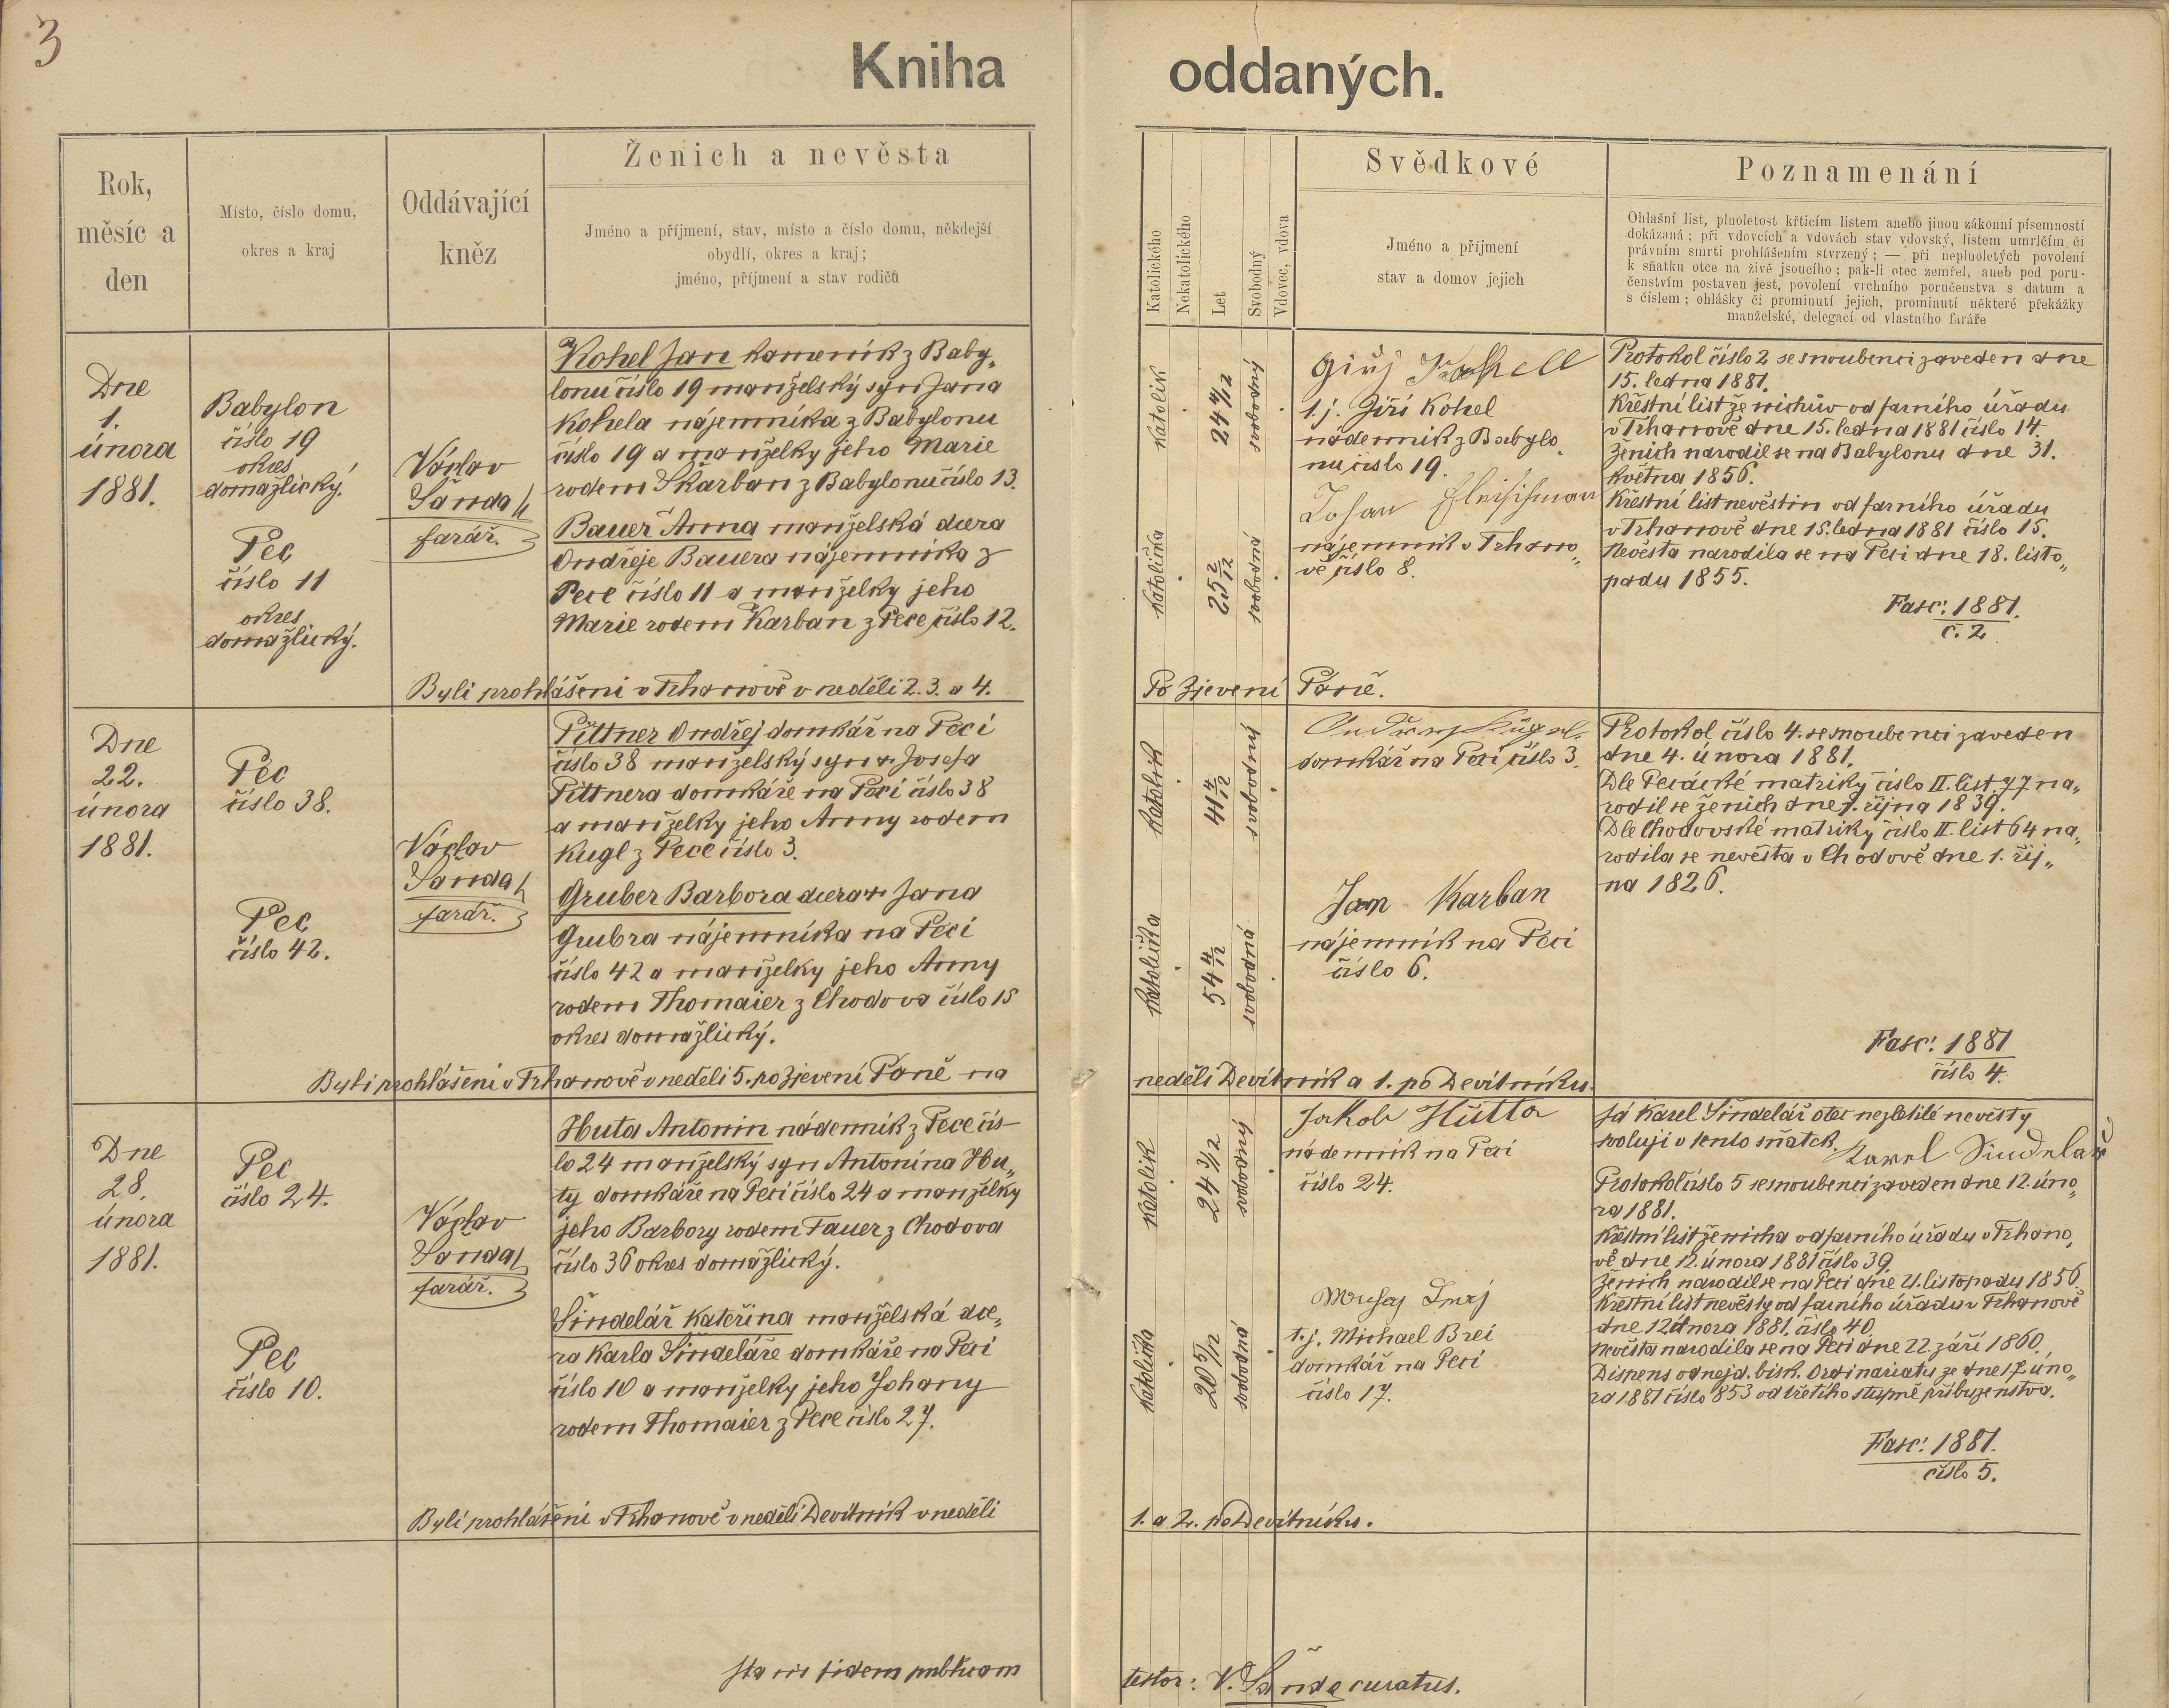 3
Kniha oddaných.
Rok,
měsíc a
den
Místo, číslo domu,
okres a kraj
Oddávající
kněz
Ženich a nevěsta
Jméno a příjmení, stav, místo a číslo domu, někdejší
obydlí, okres a kraj;
jméno, příjmení a stav rodičů
Katolického
Nekatolického
Let
Svobodný
Vdovec, vdova
Svědkové
Jméno a příjmení
stav a domov jejich
Poznamenání
Ohlašní list, plnoletost křticím listem anebo jinou zákonní písemností
dokázaná; při vdovcích a vdovách stav vdovský, listem umrlčím, či
právním smrti prohlášením stvrzený; — při neplnoletých povolení
k sňatku otce na živě jsoucího; pak-li otec zemřel, aneb pod poru-
čenstvím postaven jest, povolení vrchního poručenstva s datum a
s číslem; ohlášky či prominutí jejich, prominutí některé překážky
manželské, delegací od vlastního faráře
Dne
1.
února
1881.
Babylon
číslo 19
okres
domažlický.
Pec
číslo 11
okres
domažlický.
Václav
Šanda
farář.
Kohel Jan kamenník z Baby„
lonu číslo 19 manželský syn Jana
Kohela nájemníka z Babylonu
číslo 19 a manželky jeho Marie
rodem Skarban z Babylonu číslo 13.
Bauer Anna manželská dcera
Ondřeje Bauera nájemníka z
Pece číslo 11 a manželky jeho
Marie rodem Karban z Pece číslo 12.
katolík
24 8/12
svobodný
katolička
25 2/12
svobodná
t. j. Jiří Kohel
nádenník z Babylo„
nu číslo 19.
Johan Fleischman
nájemník v Trhano„
vě číslo 8.
Protokol číslo 2 se snoubenci zaveden dne
15. ledna 1881.
Křestní list ženichův od farního úřadu
v Trhanově dne 15. ledna 1881 číslo 14.
Ženich narodil se na Babylonu dne 31.
května 1856.
Křestní list nevěstin od farního úřadu
v Trhanově dne 15. ledna 1881 číslo 15.
Nevěsta narodila se na Peci dne 18. listo„
padu 1855.
Fasc: 1881.
č. 2
Byli prohlášeni v Trhanově v neděli 2. 3. a 4. Po Zjevení Páně.
Dne
22.
února
1881.
Pec
číslo 38.
Pec
číslo 42.
Václav
Šanda
farář.
Pittner Ondřej domkář na Peci
číslo 38 manželský syn + Josefa
Pittnera domkáře na Peci číslo 38
a manželky jeho Anny rodem
Kugl z Pece číslo 3.
Gruber Barbora dcera + Jana
Grubra nájemníka na Peci
číslo 42 a manželky jeho Anny
rodem Thomaier z Chodova číslo 15
okres domažlický.
katolík
41 4/12
svobodný
katolička
54 4/12
svobodná
domkář na Peci číslo 3.
Jan Karban
nájemník na Peci
číslo 6.
Protokol číslo 4. se snoubenci zaveden
dne 4. února 1881.
Dle Pecácké matriky číslo II. list 77 na„
rodil se ženich dne 1. října 1839.
Dle Chodovské matriky číslo II. list 64 na„
rodila se nevěsta v Chodově dne 1. říj„
na 1826.
Fasc: 1881
číslo 4.
Byli prohlášeni v Trhanově v neděli 5. po Zjevení Páně na neděli Devítník a 1. po Devítníku.
Dne
28.
února
1881.
Pec
číslo 24.
Pec
číslo 10.
Václav
Šanda
farář.
Huta Antonin nádenník z Pece čís„
lo 24 manželský syn Antonína Hu„
ty domkáře na Peci číslo 24 a manželky
jeho Barbory rodem Tauer z Chodova
číslo 36 okres domažlický.
Šindelář Kateřina manželská dce„
ra Karla Šindeláře domkáře na Peci
číslo 10 a manželky jeho Johany
rodem Thomaier z Pece číslo 27.
katolík
24 3/12
svobodný
katolička
20 5/12
svobodná
Jakob Hutta
nádenník na Peci
číslo 24.
t. j. Michael Brei
domkář na Peci
číslo 17.
Já Karel Šindelář otec nezletilé nevěsty
svoluji v tento sňatek
Karel Šindelář
Protokol číslo 5 se snoubenci zaveden dne 12. úno„
ra 1881.
Křestní list ženicha od farního úřadu v Trhano„
vě dne 12. února 1881 číslo 39.
Ženich narodil se na Peci dne 21. listopadu 1856.
Křestní list nevěsty od farního úřadu v Trhanově
dne 12 února 1881. číslo 40.
Nevěsta narodila se na Peci dne 22. září 1860.
Dispens od nejd. bisk. Ordinariatu ze dne 17. úno„
ra 1881 číslo 853 od třetího stupně příbuzenstva.
Fasc: 1881.
číslo 5.
Byli prohlášeni v Trhanově v neděli Devítník v neděli 1. a 2. po Devítníku.
in fidem publicam testor: V. Šanda curatus.